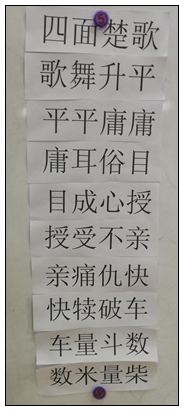 四面楚歌
歌舞升平
平平庸庸
庸耳俗目
目成心授
授受不亲
亲痛仇快
快犊破车
车量斗数
数米量柴